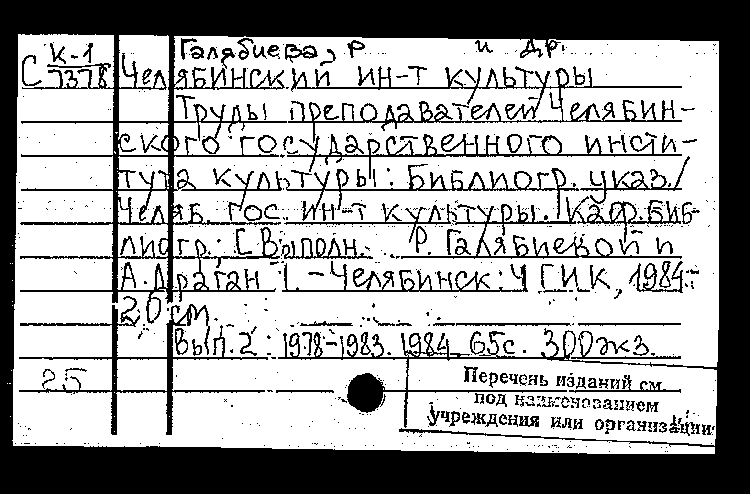 Галябиева, Р и др.
С К-1
7378
Челябинский ин-т культуры
Труды преподавателей Челябин-
ского государственного инсти-
тута культуры: Библиогр. указ./
Челяб. гос. ин-т культуры. Каф. биб-
лиогр.; [Выполн. Р. Галябиевой и
А. Драган]. - Челябинск: ЧГИК, 1984.-
20 см.
Вып. 2: 1978-1983. 1984. 65с. 300экз.
25
Перечень изданий см.
под наименованием
учреждения или организации